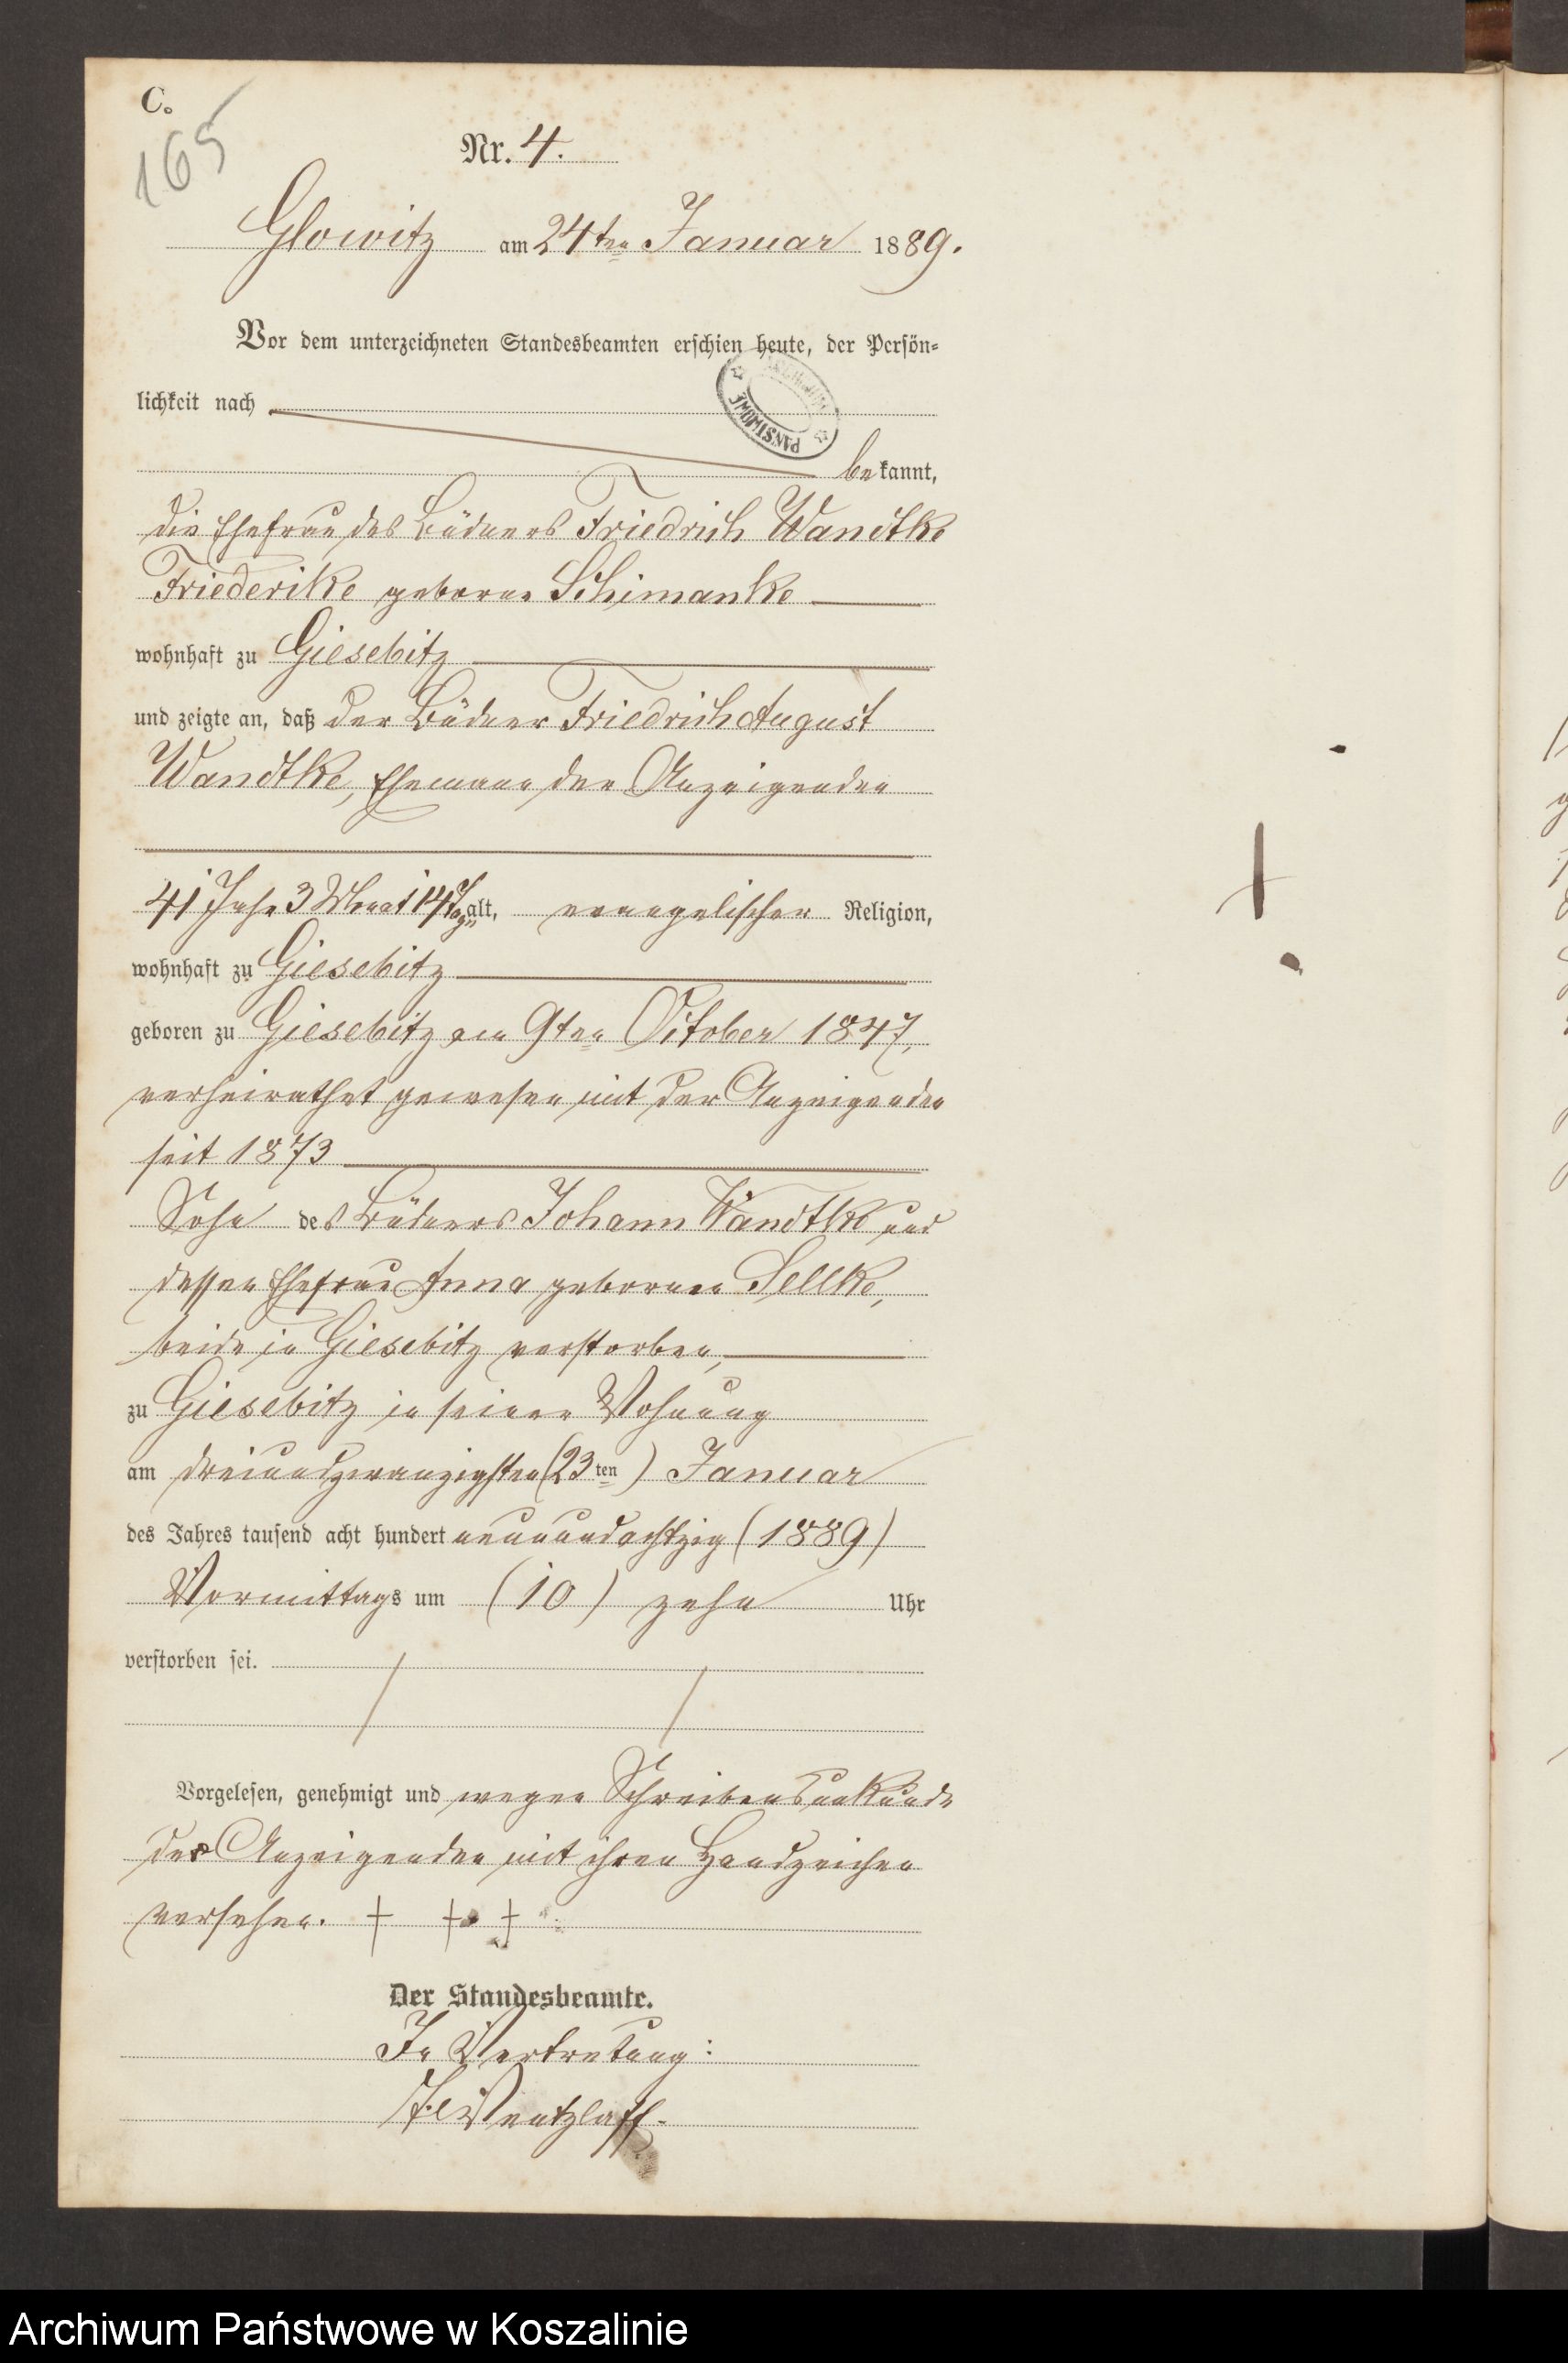 C.
165
Nr. 4.
Glowitz am 24ten Januar 1889.
Vor dem unterzeichneten Standesbeamten erschien heute, der Persön-
lichkeit nach
bekannt,
die Ehefrau des Büdners Friedrich Wandtke
Friederike geborne Schimanke
wohnhaft zu Giesebitz
und zeigte an, daß der Büdner Friedrich August
Wandtke, Ehemann der Anzeigenden
41 Jahr 3 Monat 14 Tage alt, evangelischer Religion,
wohnhaft zu Giesebitz
geboren zu Giesebitz am 9ten October 1847,
verheirathet gewesen mit der Anzeigenden
seit 1873
Sohn des Büdners Johann Wandtke und
dessen Ehefrau Anna gebornen Sellke,
beide in Giesebitz verstorben,
zu Giesebitz in seiner Wohnung
am dreiundzwanzigsten (23ten) Januar
des Jahres tausend acht hundert neunundachtzig (1889)
Vormittags um (10) zehn Uhr
verstorben sei.
Vorgelesen, genehmigt und wegen Schreibensunkunde
der Anzeigenden mit ihren Handzeichen
versehen. + + +
Der Standesbeamte.
In Vertretung:
Wentzlaff.
PAŃSTWOWE
Archiwum Państwowe w Koszalinie